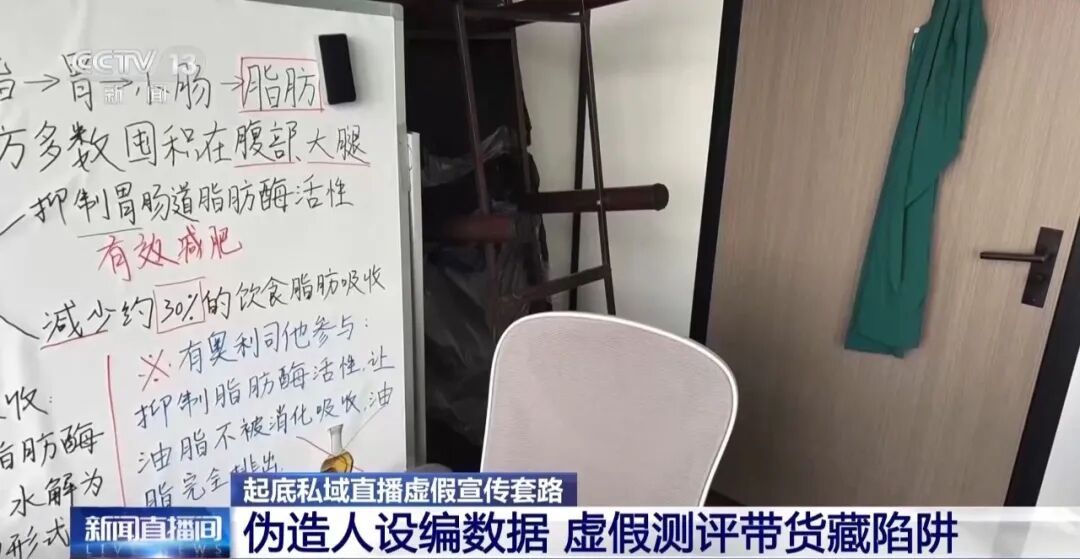 CCTV 13
新闻
→胃→小肠→脂肪
方多数囤积在腹部、大腿
抑制胃肠道脂肪酶活性
有效减肥
减少约30%的饮食脂肪吸收
※:有奥利司他参与:
抑制脂肪酶活性,让
油脂不被消化吸收,油
脂完全排出
收:
脂肪酶
水解为
形式
起底私域直播虚假宣传套路
新闻直播间
伪造人设编数据 虚假测评带货藏陷阱